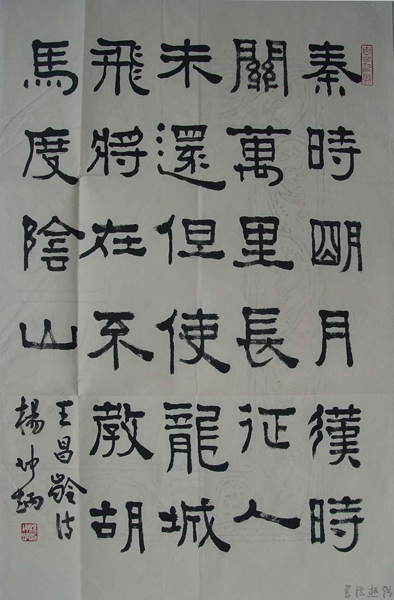 秦時明月漢時
關萬里長征人
未還但使龍城
飛將在不教胡
馬度陰山
王昌齡詩
楊仲